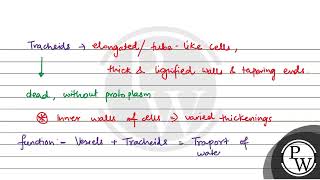 Tracheids → elongated / tube-like cells,
thick & lignified walls & tapering ends.
dead, without protoplasm
* Inner walls of cells ⇒ varied thickenings
function:- Vessels + Tracheids = Traport of
water
PW